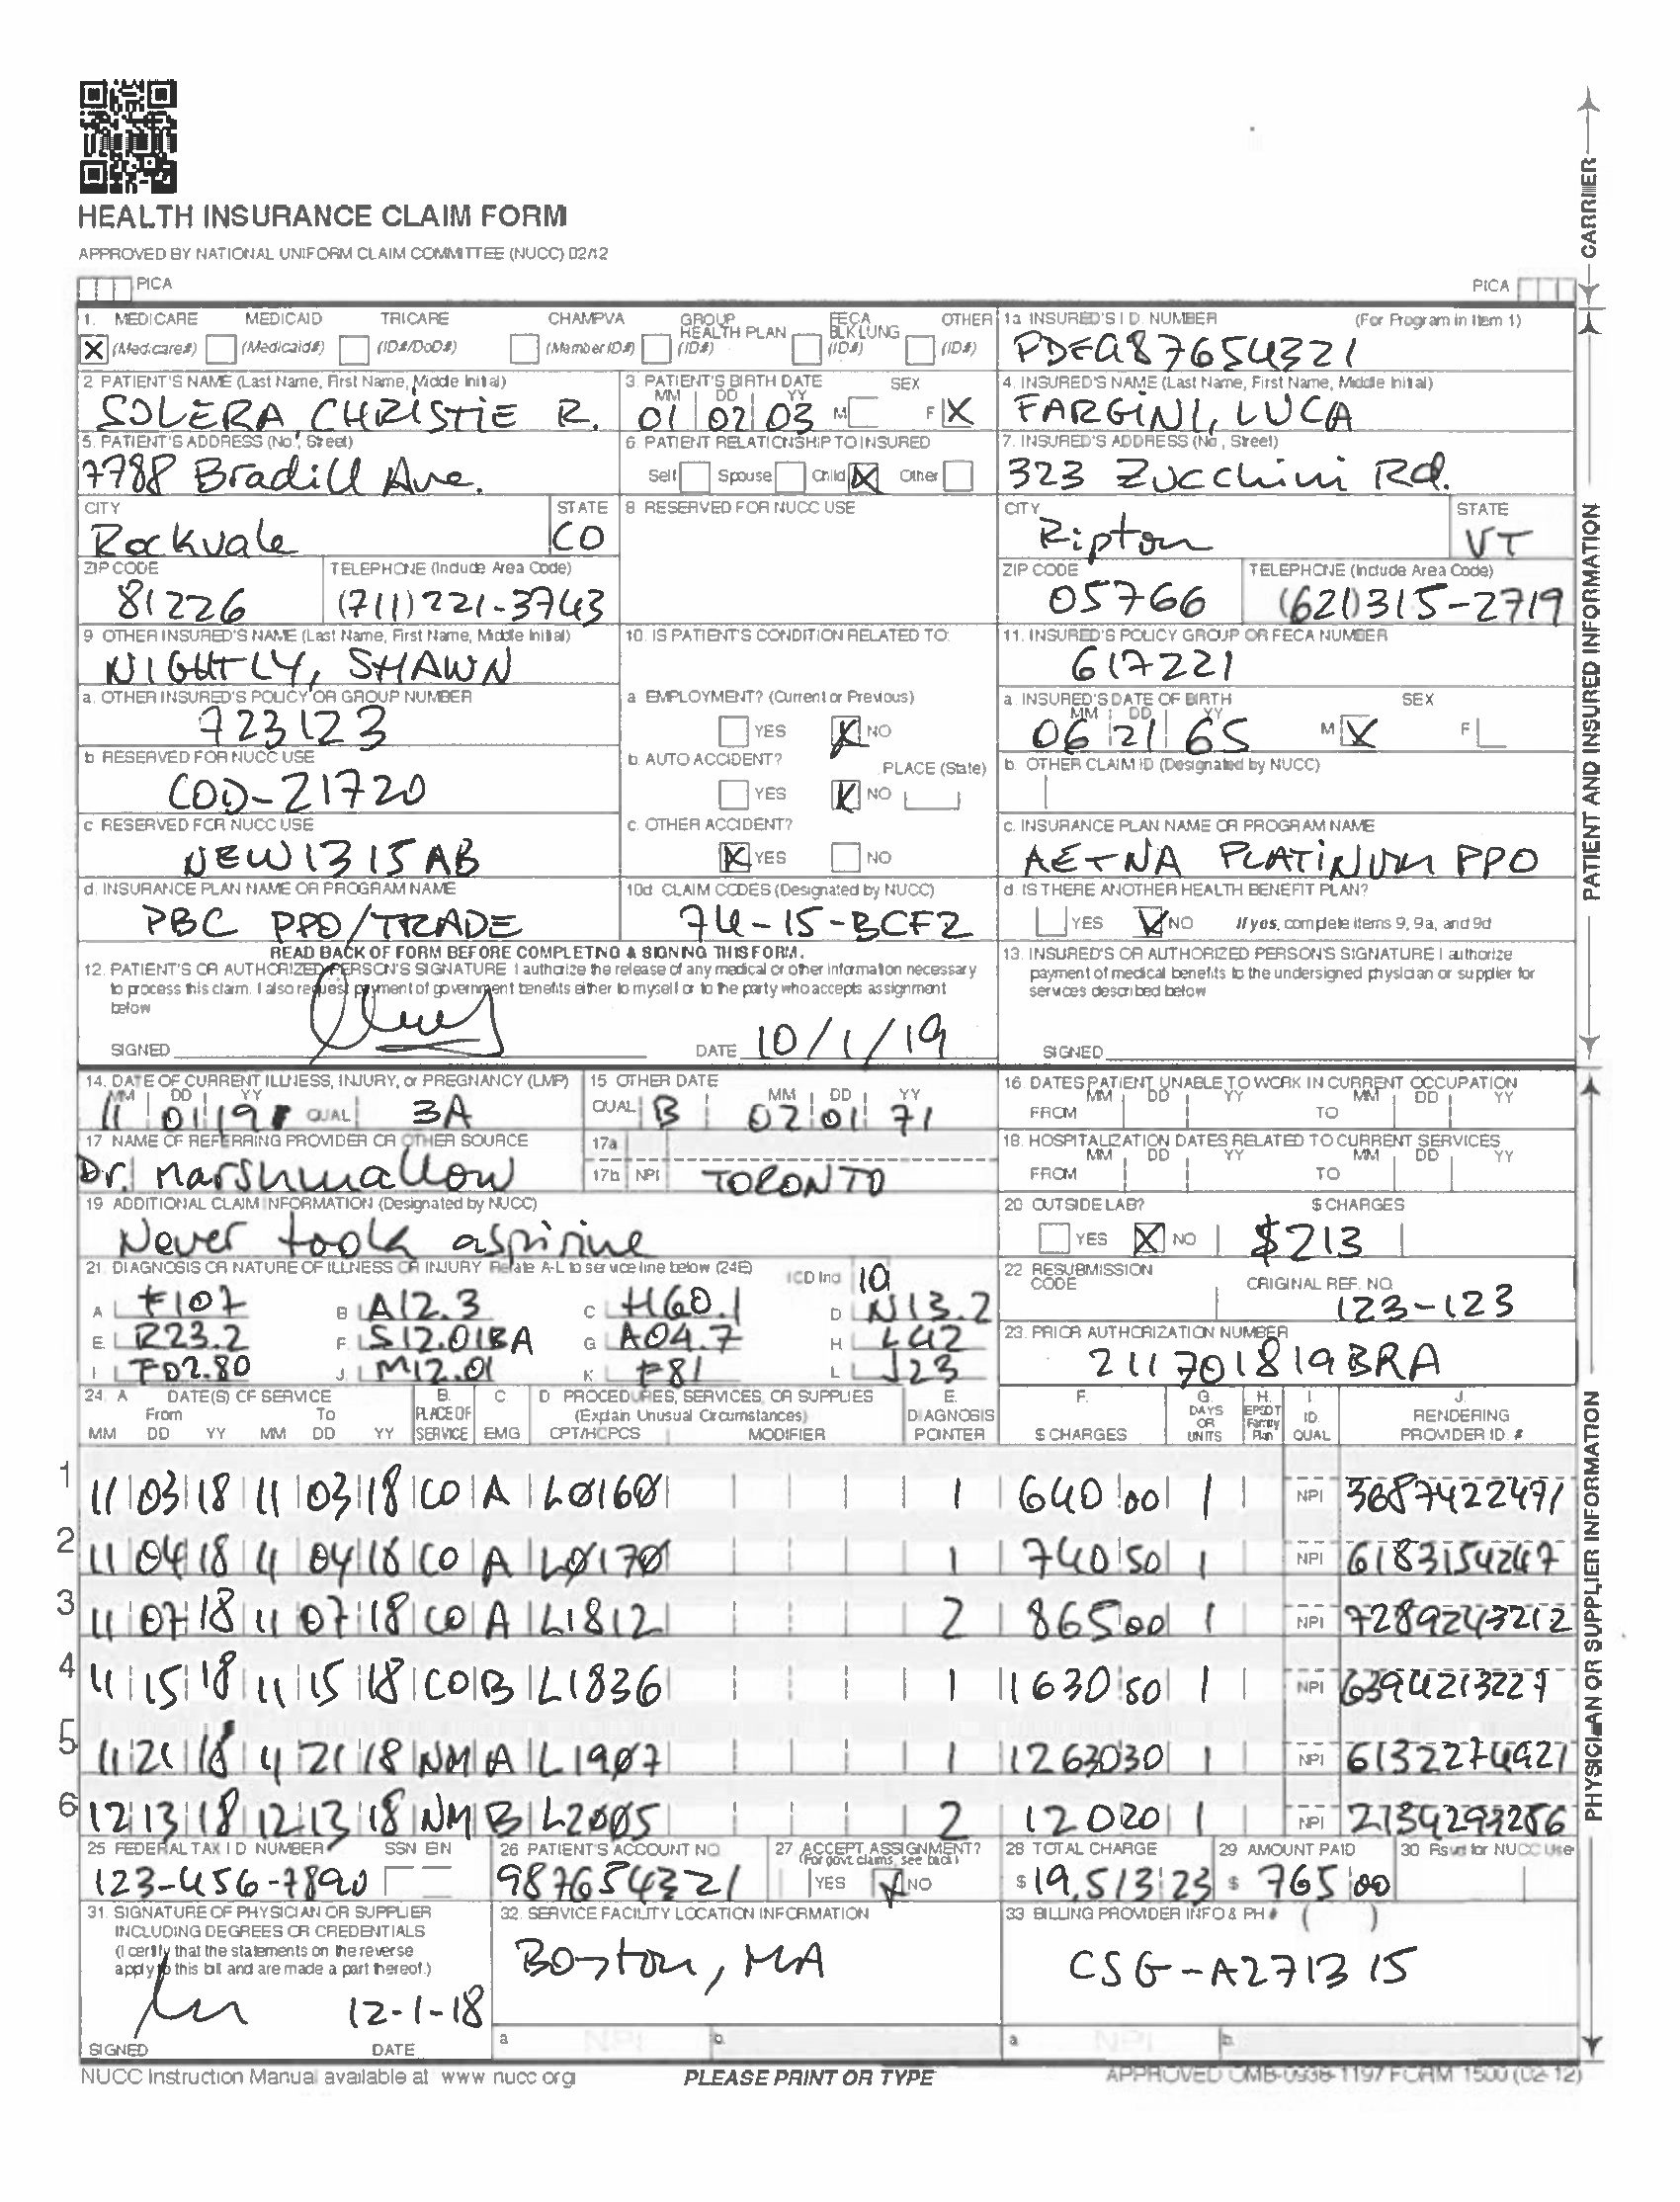 HEALTH INSURANCE CLAIM FORM
APPROVED BY NATIONAL UNIFORM CLAIM COMMITTEE (NUCC) 02/12
PICA PICA
CARRIER
1. MEDICARE MEDICAID TRICARE CHAMPVA GROUP HEALTH PLAN FECA BLK LUNG OTHER
X (Medicare#) (Medicaid#) (ID#/DoD#) (Member ID#) (ID#) (ID#) (ID#)
1a INSURED'S I D NUMBER (For Program in Item 1)
PDFA87654321
2 PATIENT'S NAME (Last Name, First Name, Middle Initial)
SOLERA, CHRISTIE R.
3. PATIENT'S BIRTH DATE SEX
MM DD YY
01 02 03 M F X
4. INSURED'S NAME (Last Name, First Name, Middle Initial)
FARGINI, LUCA
5. PATIENT'S ADDRESS (No, Street)
7788 Bradill Ave.
6. PATIENT RELATIONSHIP TO INSURED
Self Spouse Child X Other
7. INSURED'S ADDRESS (No, Street)
323 Zucchini Rd.
CITY STATE
Rockvale CO
8 RESERVED FOR NUCC USE
CITY STATE
Ripton VT
ZIP CODE TELEPHONE (Include Area Code)
81226 (711) 221-3743
ZIP CODE TELEPHONE (Include Area Code)
05766 (621) 315-2719
9 OTHER INSURED'S NAME (Last Name, First Name, Middle Initial)
NIGHTLY, SHAWN
10. IS PATIENT'S CONDITION RELATED TO:
11. INSURED'S POLICY GROUP OR FECA NUMBER
617221
a. OTHER INSURED'S POLICY OR GROUP NUMBER
723123
a EMPLOYMENT? (Current or Previous)
YES X NO
a. INSURED'S DATE OF BIRTH SEX
MM DD YY
06 21 65 M X F
b RESERVED FOR NUCC USE
COD-21720
b. AUTO ACCIDENT? PLACE (State)
YES X NO
b. OTHER CLAIM ID (Designated by NUCC)
c RESERVED FOR NUCC USE
NEW1315AB
c. OTHER ACCIDENT?
X YES NO
c. INSURANCE PLAN NAME OR PROGRAM NAME
AETNA PLATINUM PPO
d. INSURANCE PLAN NAME OR PROGRAM NAME
PBC PPO/TRADE
10d CLAIM CODES (Designated by NUCC)
74-15-BCF2
d. IS THERE ANOTHER HEALTH BENEFIT PLAN?
YES X NO If yes, complete items 9, 9a, and 9d
READ BACK OF FORM BEFORE COMPLETING & SIGNING THIS FORM.
12. PATIENT'S OR AUTHORIZED PERSON'S SIGNATURE I authorize the release of any medical or other information necessary
to process this claim. I also request payment of government benefits either to myself or to the party who accepts assignment
below
SIGNED DATE 10/1/19
13. INSURED'S OR AUTHORIZED PERSON'S SIGNATURE I authorize
payment of medical benefits to the undersigned physician or supplier for
services described below
SIGNED
PATIENT AND INSURED INFORMATION
14. DATE OF CURRENT ILLNESS, INJURY, or PREGNANCY (LMP)
MM DD YY
11 01 19 QUAL 3A
15 OTHER DATE
QUAL B MM DD YY
02 01 71
16 DATES PATIENT UNABLE TO WORK IN CURRENT OCCUPATION
MM DD YY MM DD YY
FROM TO
17 NAME OF REFERRING PROVIDER OR OTHER SOURCE
Dr. Marshmallow
17a
17b NPI TORONTO
18. HOSPITALIZATION DATES RELATED TO CURRENT SERVICES
MM DD YY MM DD YY
FROM TO
19 ADDITIONAL CLAIM INFORMATION (Designated by NUCC)
Never took aspirine
20 OUTSIDE LAB? $ CHARGES
YES X NO $213
21. DIAGNOSIS OR NATURE OF ILLNESS OR INJURY Relate A-L to service line below (24E) ICD Ind 10
A F107 B A12.3 C H60.1 D N13.2
E. R23.2 F. S12.01BA G A04.7 H L42
I F02.80 J. M12.01 K F81 L J23
22 RESUBMISSION CODE ORIGINAL REF. NO.
123-123
23. PRIOR AUTHORIZATION NUMBER
211701819BRA
24. A DATE(S) OF SERVICE B. C D PROCEDURES, SERVICES, OR SUPPLIES E. F. G. H. I J.
From To PLACE OF (Explain Unusual Circumstances) DIAGNOSIS DAYS OR EPSDT Family ID. RENDERING
MM DD YY MM DD YY SERVICE EMG CPT/HCPCS MODIFIER POINTER $ CHARGES UNITS Plan QUAL PROVIDER ID. #
1 11 03 18 11 03 18 CO A L0160 1 640 00 1 NPI 3687422471
2 11 04 18 11 04 18 CO A L0170 1 740 50 1 NPI 6183154247
3 11 07 18 11 07 18 CO A L1812 2 865 00 1 NPI 7289243212
4 11 15 18 11 15 18 CO B L1836 1 1630 50 1 NPI 6394213227
5 11 21 18 11 21 18 NM A L1907 1 12630 30 1 NPI 6132274921
6 12 13 18 12 13 18 NM B L2005 2 120 20 1 NPI
25 FEDERAL TAX I D NUMBER SSN EIN
123-456-7890
26 PATIENT'S ACCOUNT NO.
987654321
27 ACCEPT ASSIGNMENT?
(For govt. claims, see back)
YES X NO
28 TOTAL CHARGE
$ 19,513 23
29 AMOUNT PAID
$ 765 00
30 Rsvd for NUCC Use
31. SIGNATURE OF PHYSICIAN OR SUPPLIER
INCLUDING DEGREES OR CREDENTIALS
(I certify that the statements on the reverse
apply to this bill and are made a part thereof.)
12-1-18
SIGNED DATE
32. SERVICE FACILITY LOCATION INFORMATION
Boston, MA
a NPI b.
33 BILLING PROVIDER INFO & PH # ( )
CSG-A271315
a NPI b.
PHYSICIAN OR SUPPLIER INFORMATION
NUCC Instruction Manual available at www nucc org PLEASE PRINT OR TYPE APPROVED OMB-0938-1197 FORM 1500 (02-12)